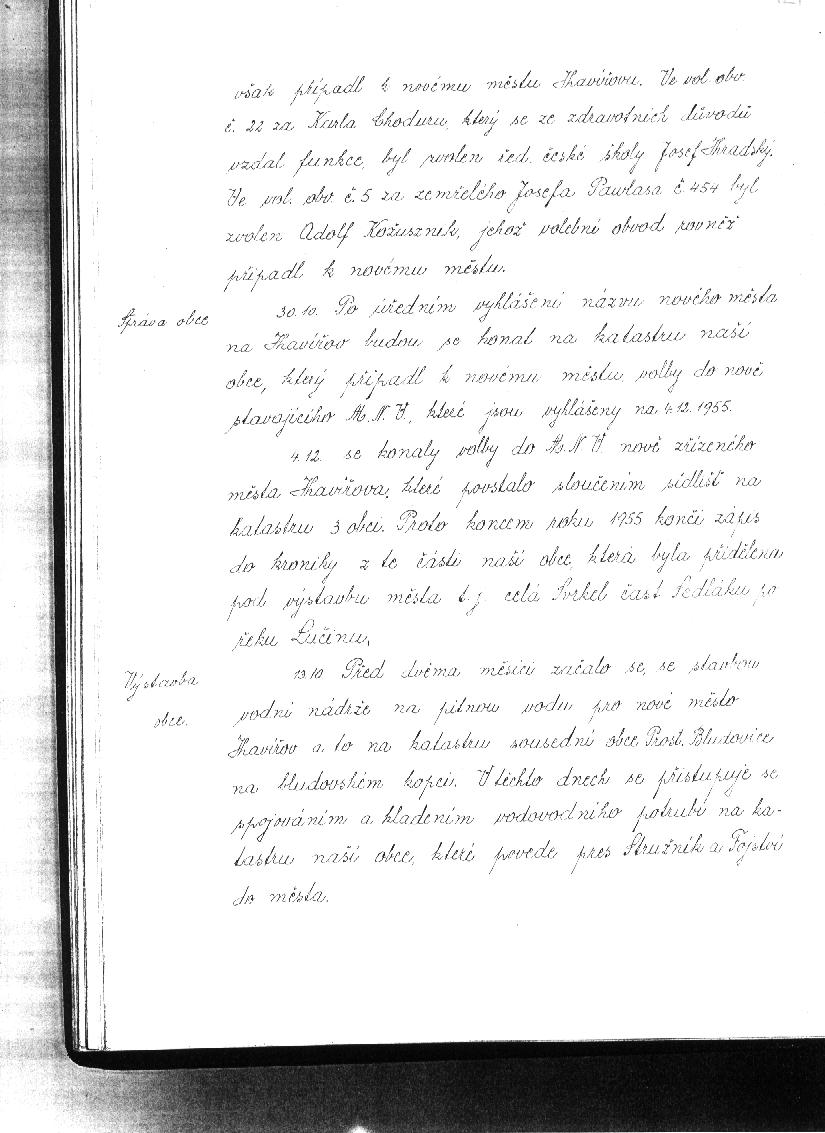 však připadl k novému městu Havířovu. Ve vol. obv.
č. 22 za Karla Choduru, který se ze zdravotních důvodů
vzdal funkce, byl zvolen řed. české školy Josef Hradský.
Ve vol. obv. č. 5 za zemřelého Josefa Pawlasa č. 454 byl
zvolen Adolf Kožusznik, jehož volební obvod rovněž
připadl k novému městu.
Správa obce
30.10. Po úředním vyhlášení názvu nového města
na Havířov budou se konat na katastru naší
obce, který připadl k novému městu, volby do nově
stavajícího M.N.V., které jsou vyhlášeny na 4.12.1955.
4.12. se konaly volby do M.N.V. nově zřízeného
města Havířova, které povstalo sloučením sídlišť na
katastru 3 obcí. Proto koncem roku 1955 končí zápis
do kroniky z té části naší obce, která byla přidělena
pod výstavbu města t.j. celá Svrkel část Sedláku po
řeku Lučinu.
Výstavba
obce.
19.10 Před dvěma měsíci začalo se, se stavbou
vodní nádrže na pitnou vodu pro nové město
Havířov a to na katastru sousední obce Prost. Bludovice
na bludovském kopci. V těchto dnech se přistupuje se
spojováním a kladením vodovodního potrubí na ka-
tastru naší obce, které povede přes Stružník a Fojství
do města.